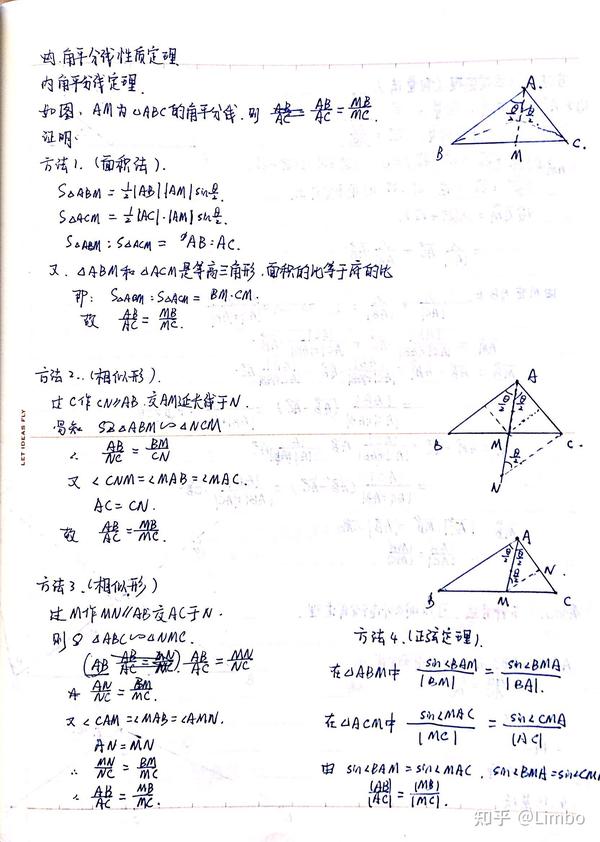 内.角平分线性质定理
内角平分线定理.
如图, AM为△ABC的角平分线. 则 AB/AC = MB/MC.
证明:
方法1. (面积法).
S△ABM = 1/2|AB||AM|sin θ/2.
S△ACM = 1/2|AC|·|AM|sin θ/2.
S△ABM : S△ACM = AB:AC.
又. △ABM和△ACM是等高三角形. 面积的比等于底的比
即: S△ABM : S△ACM = BM:CM.
故 AB/AC = MB/MC.
A.
θ/2 θ/2
B M C.
方法2. (相似形).
过C作CN∥AB. 交AM延长线于N.
易知 △ABM∽△NCM
∴ AB/NC = BM/CN
又∠CNM=∠MAB=∠MAC.
AC=CN.
故 AB/AC = MB/MC.
A
θ/2 θ/2
B M C.
θ/2
N
方法3. (相似形)
过M作MN∥AB交AC于N.
则 △ABC∽△NMC.
AB/AC = MN/NC
AN/NC = BM/MC.
又∠CAM=∠MAB=∠AMN.
AN=MN
∴ MN/NC = BM/MC
∴ AB/AC = MB/MC.
A
θ/2 θ/2
θ/2 N.
B M C
方法4. (正弦定理).
在△ABM中 sin∠BAM/|BM| = sin∠BMA/|BA|.
在△ACM中 sin∠MAC/|MC| = sin∠CMA/|AC|
由 sin∠BAM=sin∠MAC. sin∠BMA=sin∠CMA
|AB|/|AC| = |MB|/|MC|.
LET IDEAS FLY
知乎 @Limbo